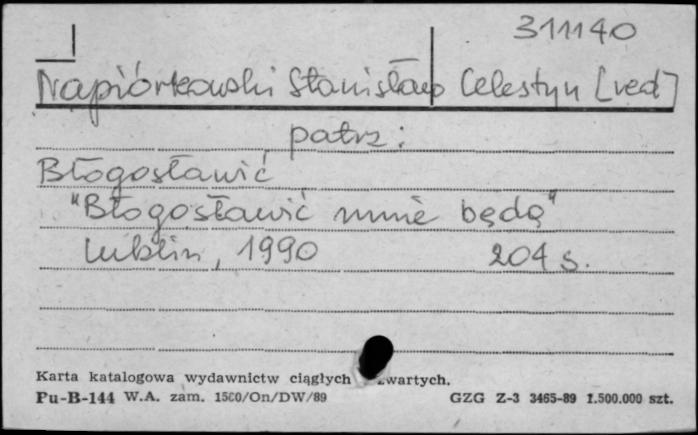 311140
Napiórkowski Stanisław Celestyn [red]
patrz:
Błogosławić
"Błogosławić mnie będą"
Lublin, 1990 204 s.
Karta katalogowa wydawnictw ciągłych zwartych.
Pu-B-144 W.A. zam. 1500/On/DW/89 GZG Z-3 3465-89 1.500.000 szt.